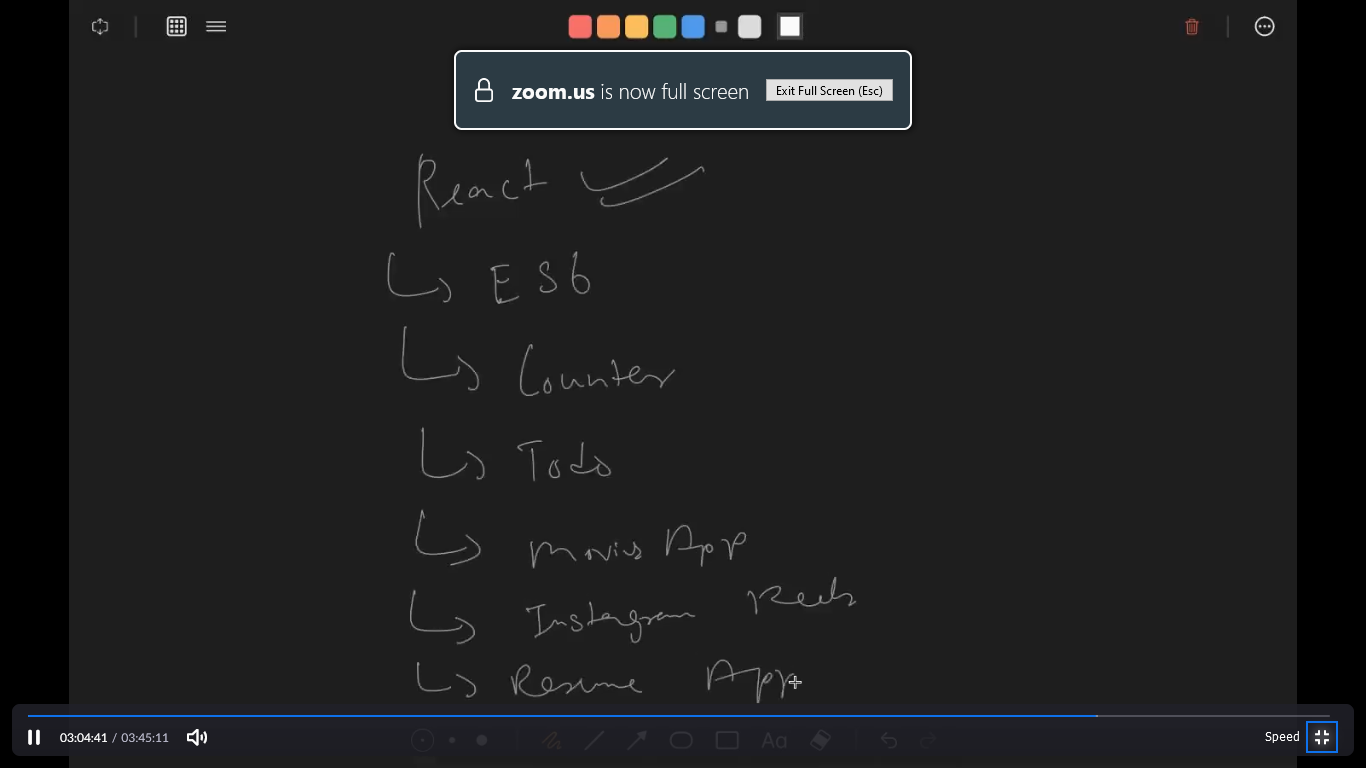 zoom.us is now full screen Exit Full Screen (Esc)
React
ES6
Counter
Todo
Movies App
Instagram Reels
Resume App
03:04:41 / 03:45:11
Speed
Aa